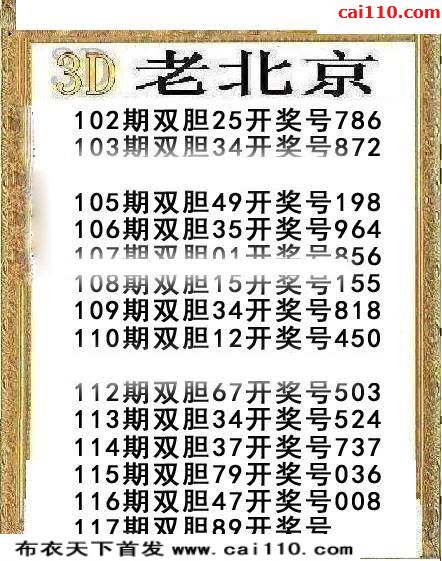 cai110.com
3D 老北京
102期双胆25开奖号786
103期双胆34开奖号872
105期双胆49开奖号198
106期双胆35开奖号964
107期双胆01开奖号856
108期双胆15开奖号155
109期双胆34开奖号818
110期双胆12开奖号450
112期双胆67开奖号503
113期双胆34开奖号524
114期双胆37开奖号737
115期双胆79开奖号036
116期双胆47开奖号008
117期双胆89开奖号
布衣天下首发 www.cai110.com